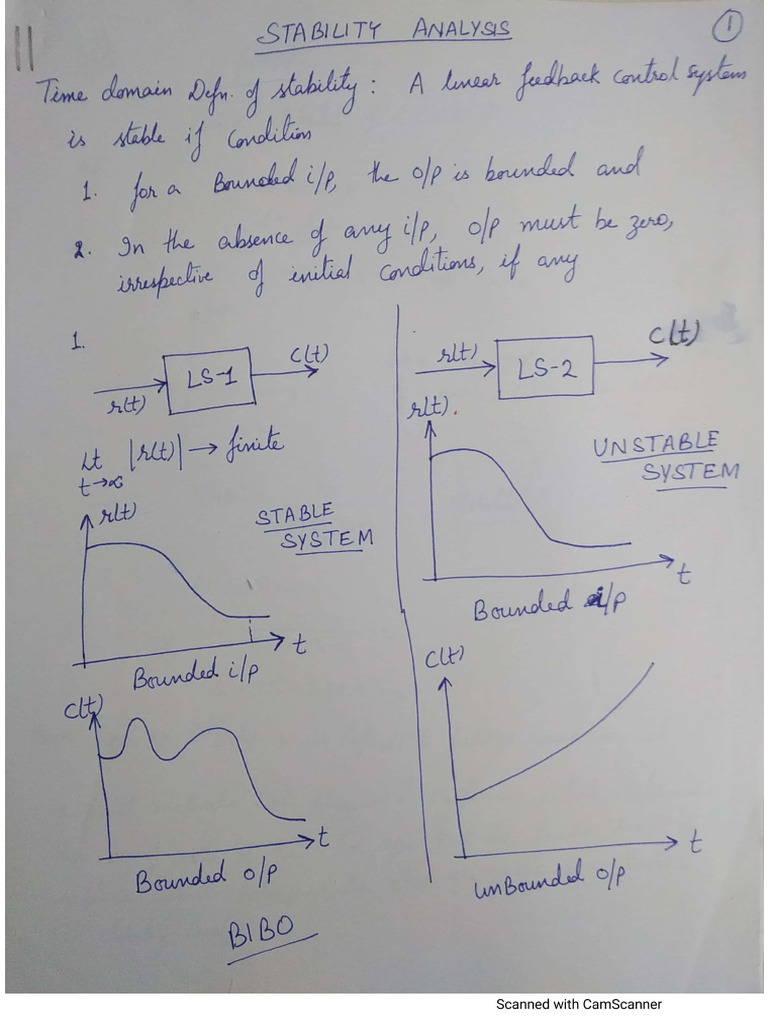 STABILITY ANALYSIS
1
Time domain Defn. of stability : A linear feedback control system
is stable if condition
1. for a Bounded i/p, the o/p is bounded and
2. In the absence of any i/p, o/p must be zero,
irrespective of initial conditions, if any
1.
r(t)
LS-1
C(t)
Lt |r(t)| → finite
t→∞
r(t)
STABLE
SYSTEM
t
Bounded i/p
C(t)
t
Bounded o/p
BIBO
r(t)
LS-2
C(t)
r(t).
UNSTABLE
SYSTEM
t
Bounded i/p
C(t)
t
unBounded o/p
Scanned with CamScanner